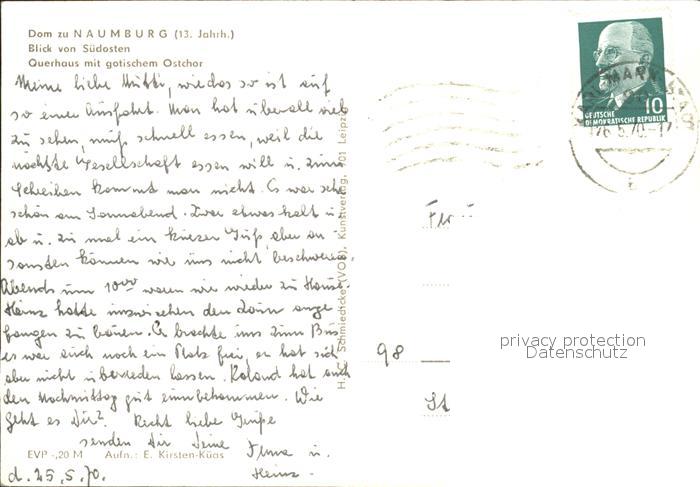 Dom zu NAUMBURG (13. Jahrh.)
Blick von Südosten
Querhaus mit gotischem Ostchor
Meine liebe Mutti, wie das so ist auf
so einer Ausfahrt. Man hat überall viel
zu sehen, muß schnell essen, weil die
nächste Gesellschaft essen will u. zum
Schreiben kommt man nicht. Es war sehr
schön am Sonnabend. Zwar etwas kalt u.
ab u. zu mal ein kurzer Guß, aber an
sonsten können wir uns nicht beschweren.
Abends um 10 waren wir wieder zu Hause.
Heinz hatte inzwischen den Zaun ange
fangen zu bauen. Er brachte uns zum Bus
es war auch noch ein Platz frei, er hat sich
aber nicht überreden lassen. Roland hat auch
den Nachmittag gut rumbekommen. Wie
geht es Dir? Recht liebe Grüße
senden Dir Deine
u.
Heinz.
EVP -,20 M Aufn.: E. Kirsten-Küas
d. 25.5.70.
H. C. Schmiedicke (VOB), Kunstverlag, 701 Leipzig
10
DEUTSCHE
DEMOKRATISCHE REPUBLIK
KARL-MARX-STADT
26.5.70.-17
98
St
privacy protection
Datenschutz